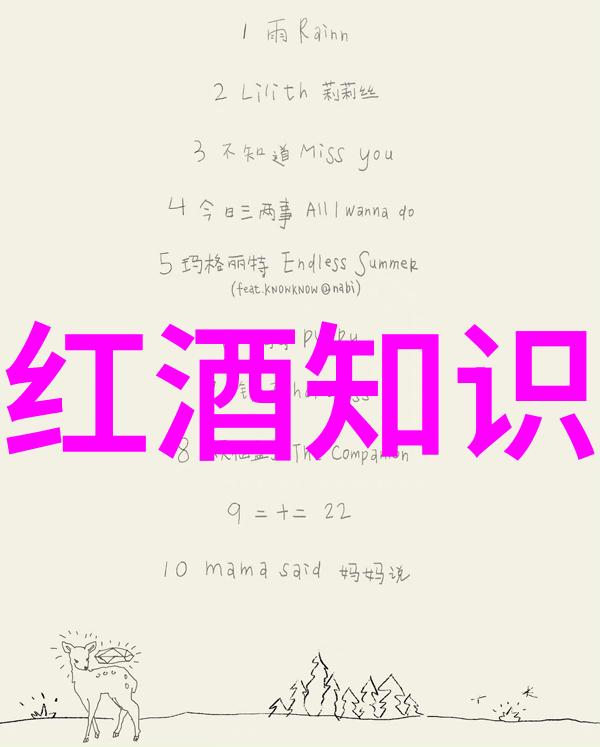 1 雨 Rainn
2 Lilith 莉莉丝
3 不知道 Miss you
4 今日三两事 All I wanna do
5 玛格丽特 Endless Summer
(feat.KNOWKNOW@nabi)
红酒知识
8 The Companion
9 二十二 22
10 mama said 妈妈说